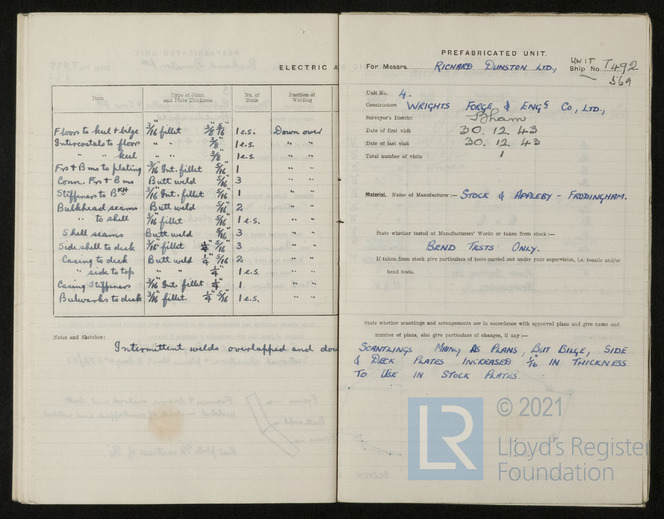 ELECTRIC A
Item Type of Joint and Plate Thickness No. of Runs Position of Welding
Floors to keel & bilge 3/16 fillet 3/8 5/16 1 e.s. Down over
Intercostals to floors " " 3/8 1 e.s. " "
" " keel " " 3/8 1 e.s. " "
Frs & Bms to plating 3/16 Int. fillet 5/16 1 " "
Conn. Frs & Bms Butt weld 5/16 3 " "
Stiffeners to Bkhd 3/16 Int. fillet 5/16 1 " "
Bulkhead seams Butt weld 5/16 2 " "
" to shell 3/16 fillet 5/16 1 e.s. " "
Shell seams Butt weld 5/16 3 " "
Side shell to deck 3/16 fillet 1/4 5/16 3 " "
Casing to deck Butt weld 1/4 5/16 2 " "
" side to top " " 1/4 1 e.s. " "
Casing Stiffeners 3/16 Int. fillet 1/4 1 " "
Bulwarks to deck 3/16 fillet 1/4 5/16 1 e.s. " "
Notes and Sketches:
Intermittent welds overlapped and dou
PREFABRICATED UNIT.
For Messrs. RICHARD DUNSTON LTD., UNIT Ship No. T492
569
Unit No. 4.
Constructors WRIGHTS FORGE & ENGG CO, LTD.,
Surveyor's District B'ham
Date of first visit 30. 12. 43
Date of last visit 30. 12. 43
Total number of visits 1
Material. Name of Manufacturer:— STOCK & APPLEBY - FRODINGHAM.
State whether tested at Manufacturers' Works or taken from stock:—
BEND TESTS ONLY.
If taken from stock give particulars of tests carried out under your supervision, i.e. tensile and/or
bend tests.
State whether scantlings and arrangements are in accordance with approved plans and give name and
number of plans, also give particulars of changes, if any:—
SCANTLINGS MAINLY AS PLANS, BUT BILGE, SIDE
& DECK PLATES INCREASED 1/16 IN THICKNESS
TO USE IN STOCK PLATES.
© 2021
LR Lloyd's Register
Foundation